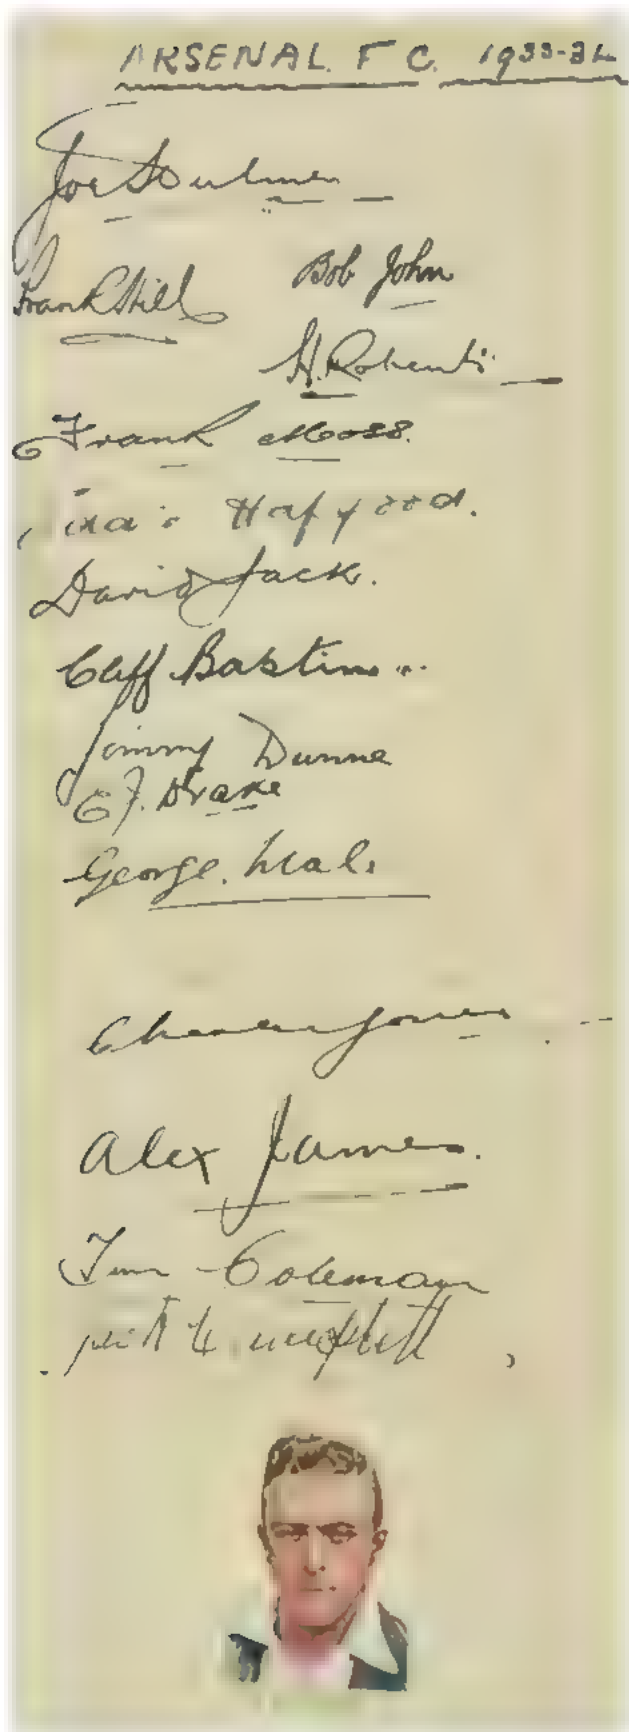 ARSENAL. F C. 1933-34
Joe Hulme
Frank Hill Bob John
H. Roberts
Frank Moss.
Hapgood.
David Jack.
Cliff Bastin..
Jimmy Dunne
E J. Drake
George. Male
Charlie Jones
Alex James.
Tim Coleman